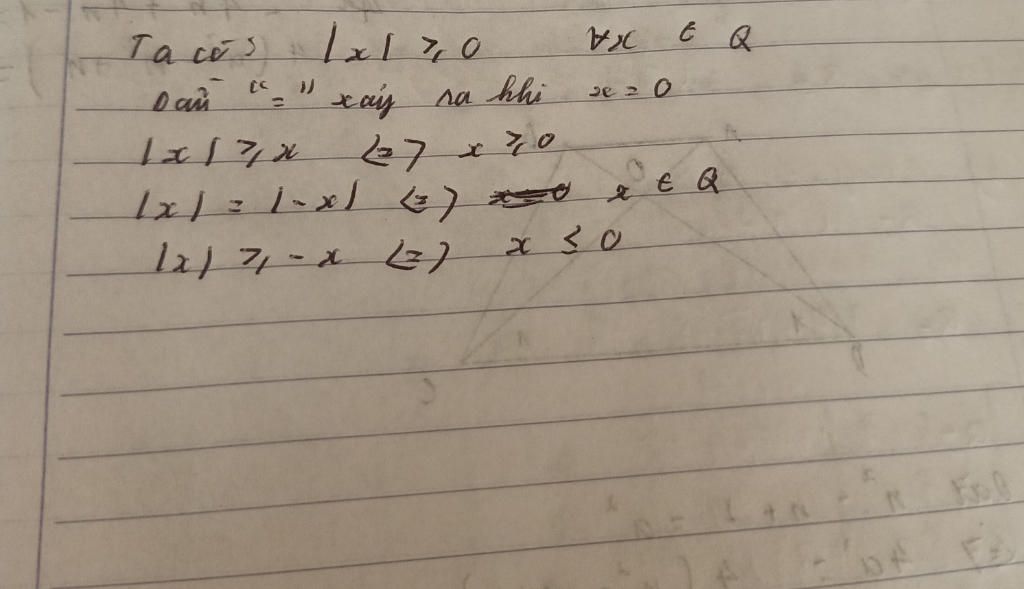 Ta có: |x| ≥ 0 ∀x ∈ Q
Dấu "=" xảy ra khi x = 0
|x| ≥ x <=> x ≥ 0
|x| = |-x| <=> x ∈ Q
|x| ≥ -x <=> x ≤ 0